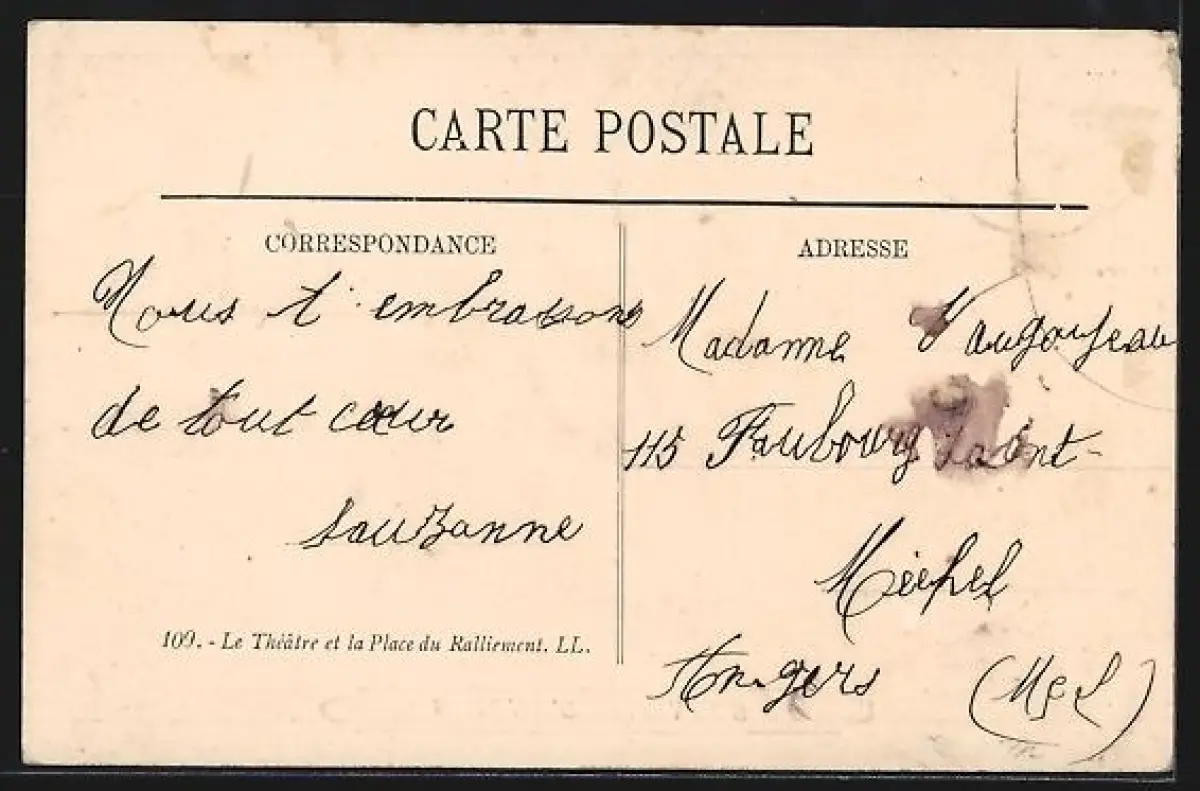 CARTE POSTALE
CORRESPONDANCE
Nous t'embrassons
de tout cœur
Souzanne
109. - Le Théâtre et la Place du Ralliement. LL.
ADRESSE
Madame
115 Faubourg Saint-
Michel
Angers (M&L)